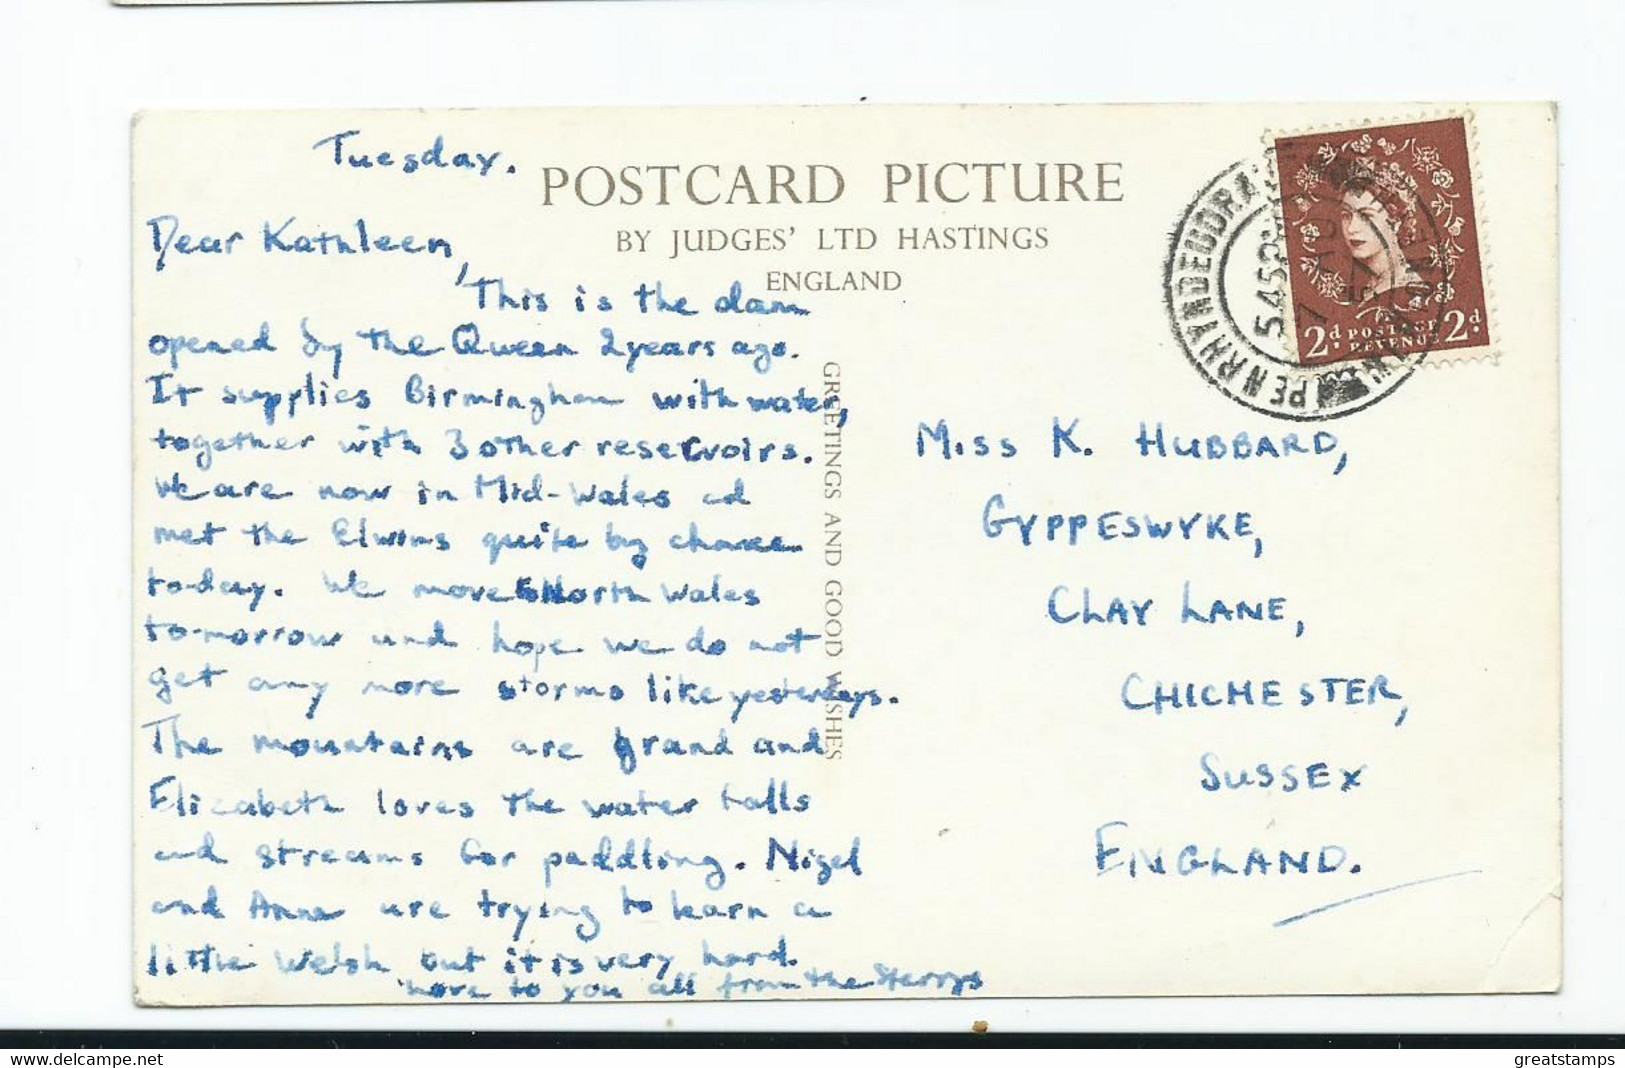 Tuesday.
POSTCARD PICTURE
BY JUDGES' LTD HASTINGS
ENGLAND
Dear Kathleen,
This is the dam
opened by the Queen 2 years ago.
It supplies Birmingham with water,
together with 3 other reservoirs.
We are now in Mid-Wales ad
met the Elwins quite by chance
to-day. We move to North Wales
to-morrow and hope we do not
get any more storms like yesterdays.
The mountains are grand and
Elizabeth loves the water falls
and streams for paddling. Nigel
and Anne are trying to learn a
little Welsh but it is very hard.
Love to you all from the Sterrys
GREETINGS AND GOOD WISHES
PENRHYNDEUDRAETH
2d POSTAGE 2d
REVENUE
MISS K. HUBBARD,
GYPPESWYKE,
CLAY LANE,
CHICHESTER,
SUSSEX
ENGLAND.
greatstamps